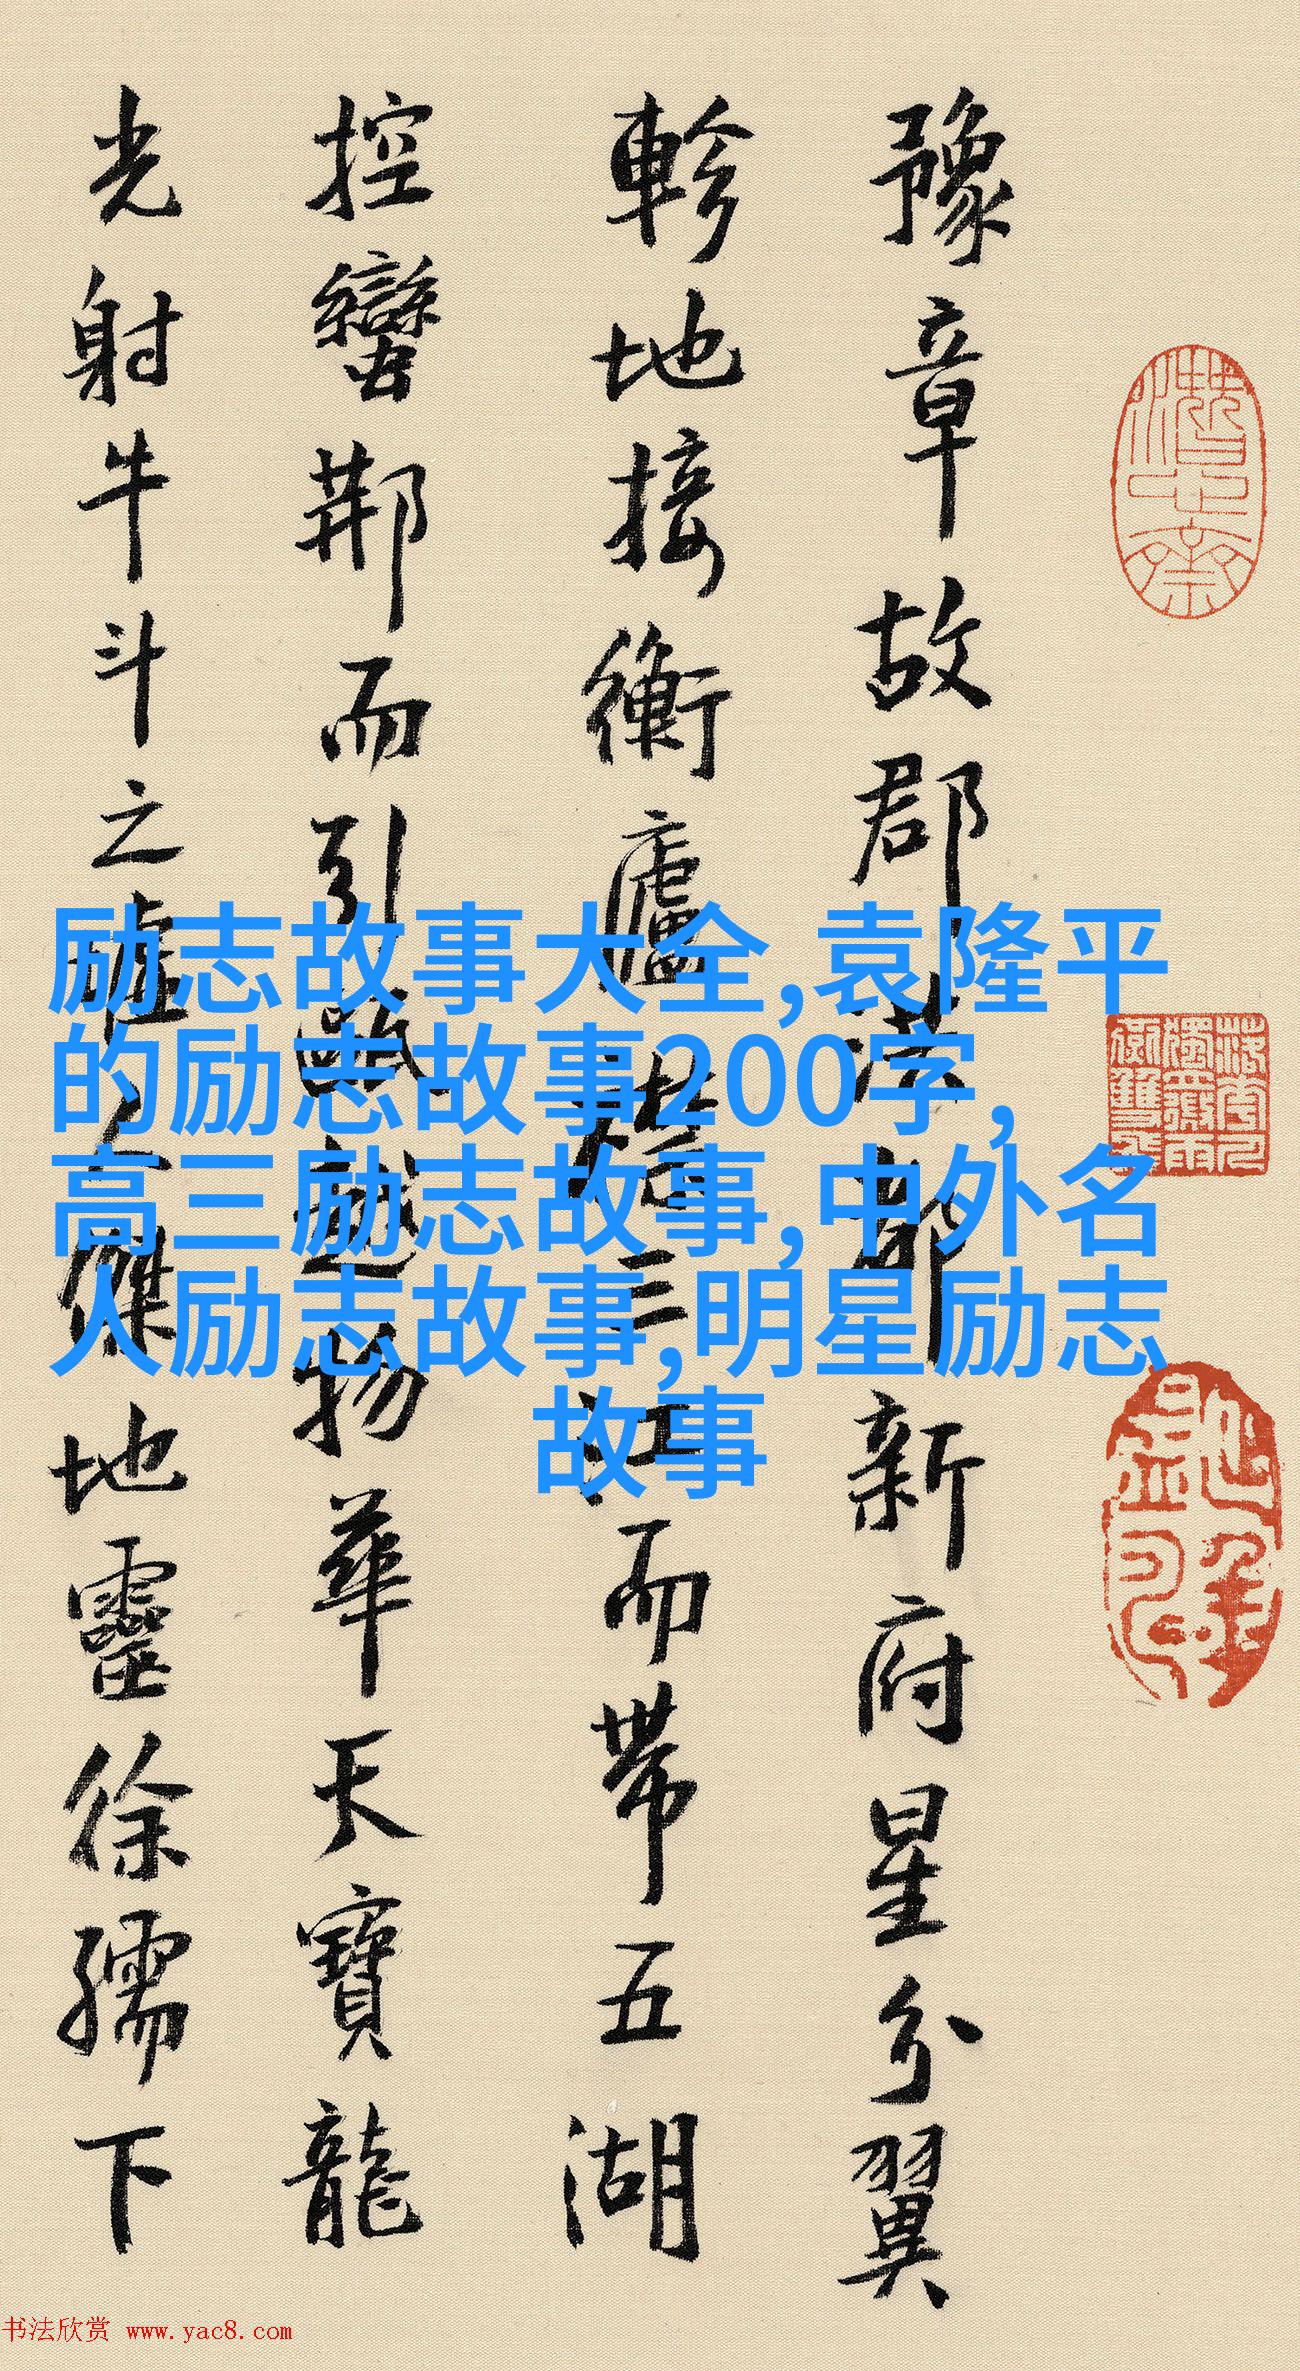 豫章故郡洪都新府星分翼
軫地接衡廬襟三江而帶五湖
控蠻荊而引甌越物華天寶龍
光射牛斗之墟人傑地靈徐孺下
励志故事大全,袁隆平
的励志故事200字,
高三励志故事,中外名
人励志故事,明星励志
故事
书法欣赏 www.yac8.com